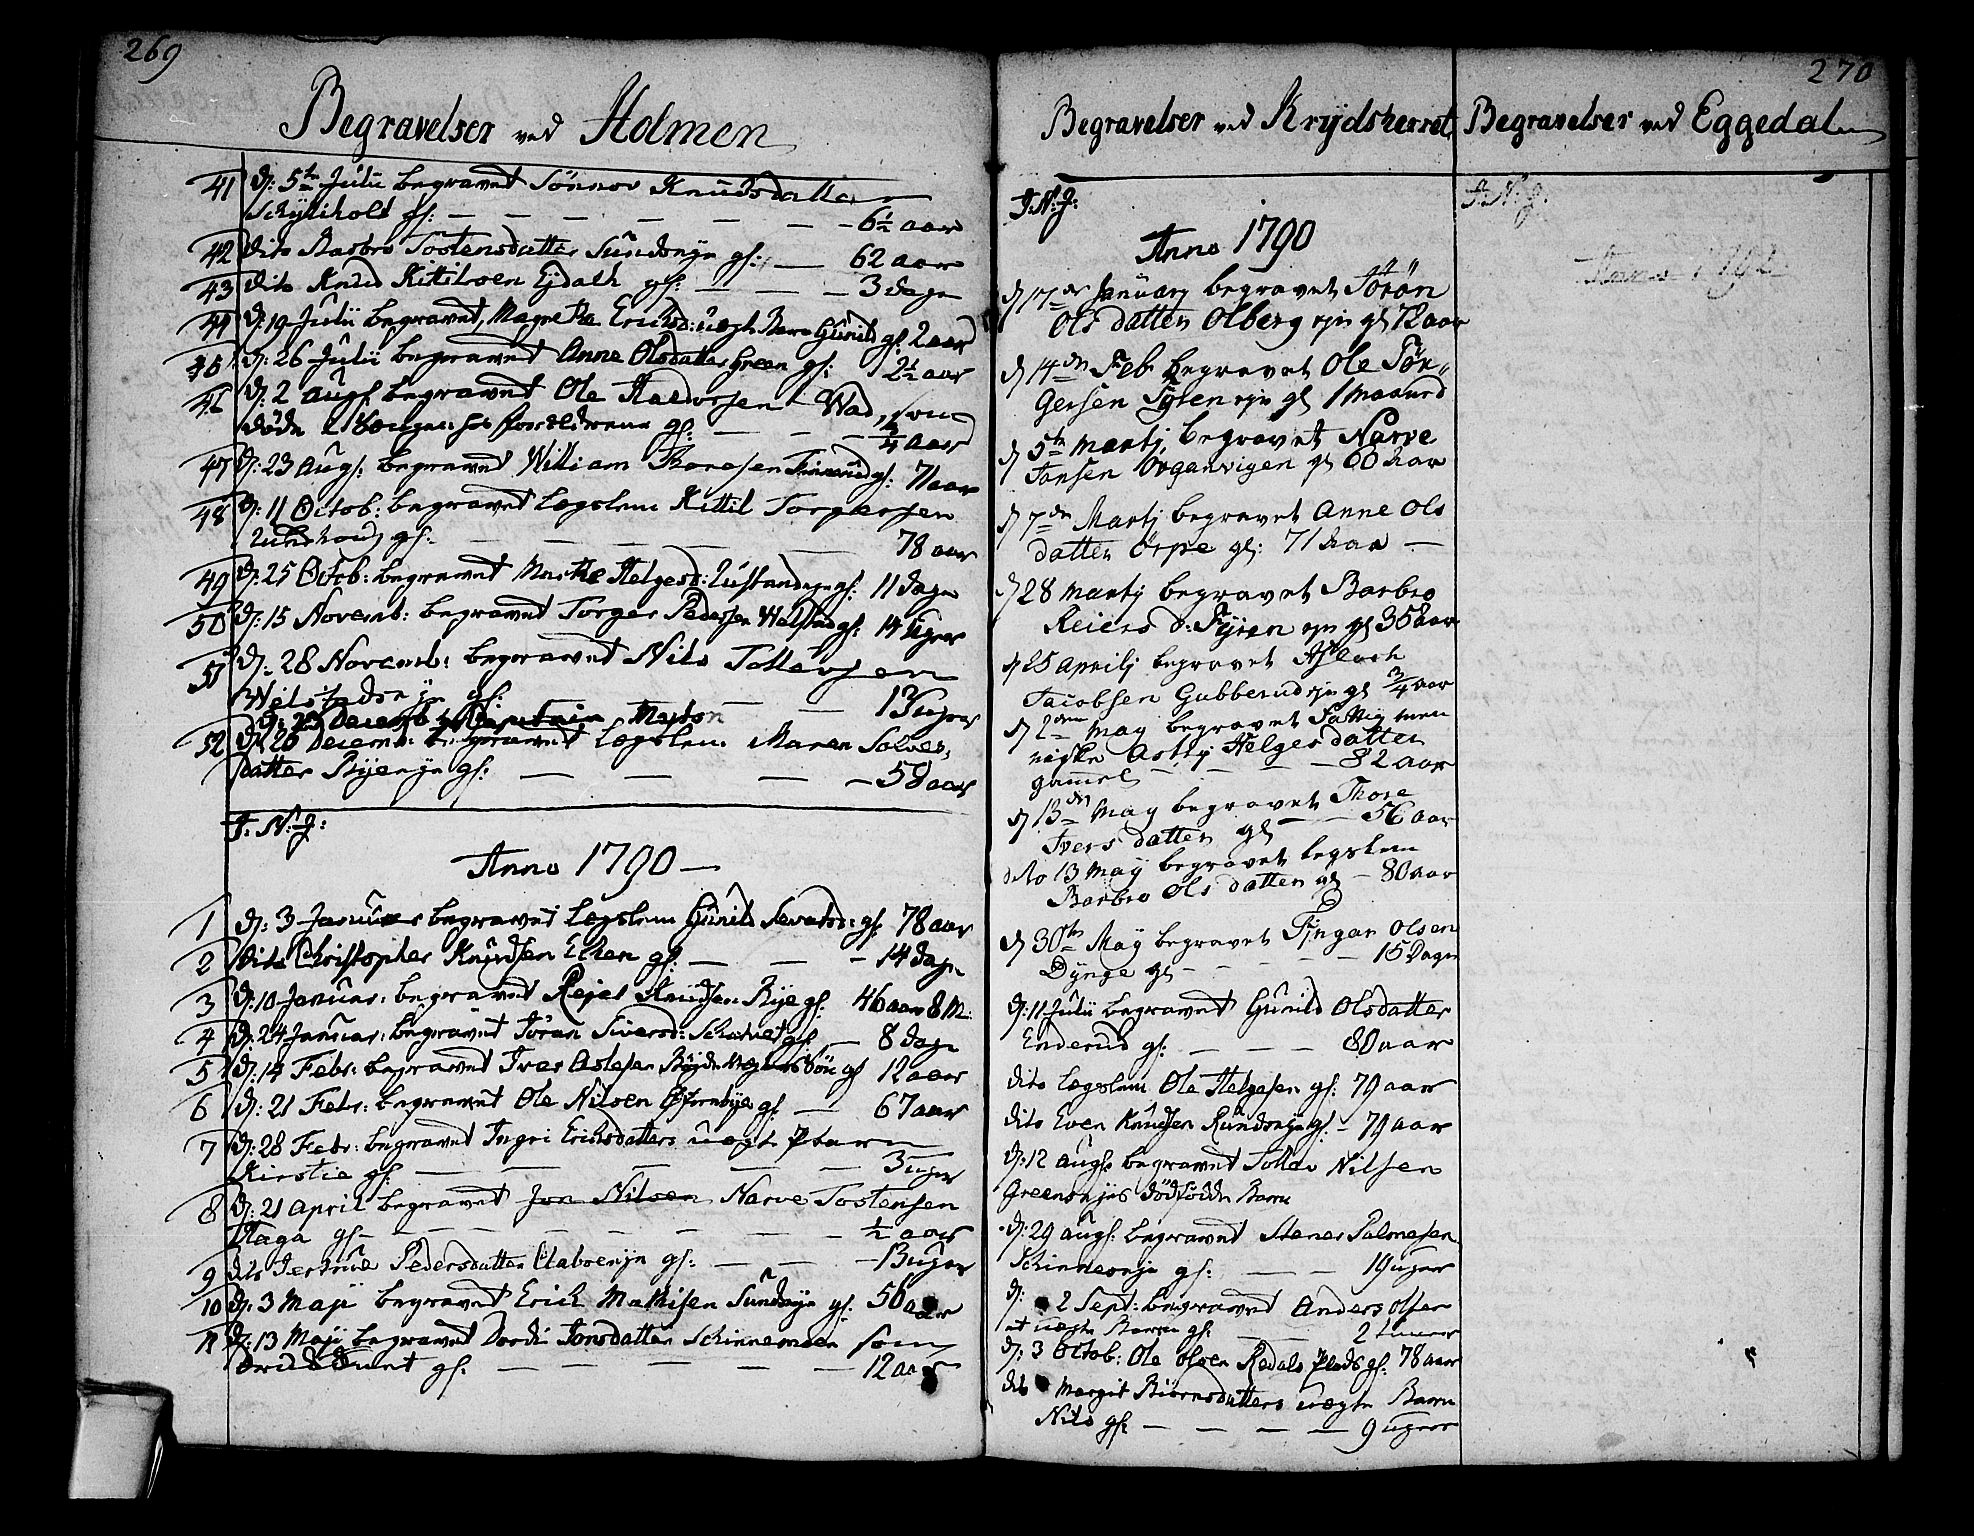 269
Begravelser ved Holmen
41 d: 5te Julii begravet Sønnov Knudsdatter
gl: — — — — — — 6½ aar
42 dito Barbro Tostensdatter Sundseje gl: — 62 aar
43 dito Knud Kittilsen Ejdahl gl: — — — 3 dage
44 d: 19 Julii begravet, Magretha Erichsd: uægte Barn Gunild gl: 2 aar
45 d: 26 Julii begravet Anne Olsdatter Green gl: 2½ aar
46 d: 2 Augl begravet Ole Halvorsen Wad, som
døde gl: — — — ¾ aar
47 d: 23 Augl: begravet William Thoresen gl: 71 aar
48 d: 11 Octob: begravet Lægslem Kittil Torgersen
gl: — — — — — 78 aar
49 d: 25 Octob: begravet Marthe Helgesd: gl: 11 dage
50 d: 15 Novemb: begravet Torger Pedersen gl: 14 Uger
51 d: 28 Novemb: begravet Nils Tollevsen
gl: — — — — 13 uger
d: 23 Decemb
52 d: 26 Decemb: begravet Lægslem Maren Solves,
datter Ryeneje gl: — — — — 58 aar
I: N: J:
Anno 1790 —
1 d: 3 Januar begravet Lægslem Gunild gl: 78 aar
2 dito Christopher Knudsen Eken gl: — — — 14 dage
3 d: 10 Januar: begravet Rejer Knudsen Rye gl: 46 aar 8 M:
4 d: 24 Januar: begravet Jøran Siversd: gl: — 8 dage
5 d: 14 Febr: begravet Iver Aslesen Søn gl 12 aar
6 d: 21 Febr: begravet Ole Nilsen gl: — 67 aar
7 d: 28 Febr: begravet Ingri Erichsdatters uegte Barn
Kirstie gl: — — — — — 3 uger
8 d: 21 April begravet Jon Nilsen Narve Tostensen
Haga gl — — — — — ½ aar
9 dito Jertrue Pedersdatter gl: — — — 13 uger
10 d: 3 Maji begravet Erich Mathisen Sundseje gl: 56 aar
11 d: 13 Maji begravet Dordi Jonsdatter Schinnemoen som
gl: — — — — — 12 aar
270
Begravelser ved Krydsherret
I: N: J:
Anno 1790
d 17de January begravet Jørøn
Ols datter Olberg eje gl 72 aar
d 14de Feb begravet Ole Tør-
gersen Fyren eje gl 1 Maaned
d 5te Martj begravet Narve
Jonsen Organvigen gl 66 Aar
d 7de Martj begravet Anne Ols
datter Ørpe gl: 71 Aar —
d 28 Martj begravet Barbro
Reiers d: Fyren eje gl 35 aar
d 25 Aprilj begravet Aslach
Jacobsen Gubberud eje gl ¾ aar
d 2den May begravet Fattig men
niske Astrj Helges datter
gamel — — — — 82 aar
d 13de May begravet Thore
Ivers datter gl — — 56 aar
dito 13 May begravet legslem
Barbro Ols datter gl — 80 aar
d 30te May begravet Fingar Olsen
Dynge gl — — — — — 15 Dage
d: 11 Julii begravet Gunild Olsdatter
Enderud gl: — — — 80 aar
dito Lægslem Ole Helgesen gl: 70 aar
dito Even Knudsen gl: — 79 aar
d: 12 Augl: begravet Nilsen
Greensejes dødfødde Barn
d: 29 Augl: begravet Stener Palmesen
Schinneseje gl: — — 19 uger
d: 2 Sept: begravet Anders Olsen
et uægte Barn gl: — — 2
d: 3 Octob: Ole Olsen Redals Plads gl: 78 aar
dito Margit Biørnsdatters uægte Barn
Nils gl: — — — — 9 uger
Begravelser ved Eggedal
I: N: J:
Anno 179